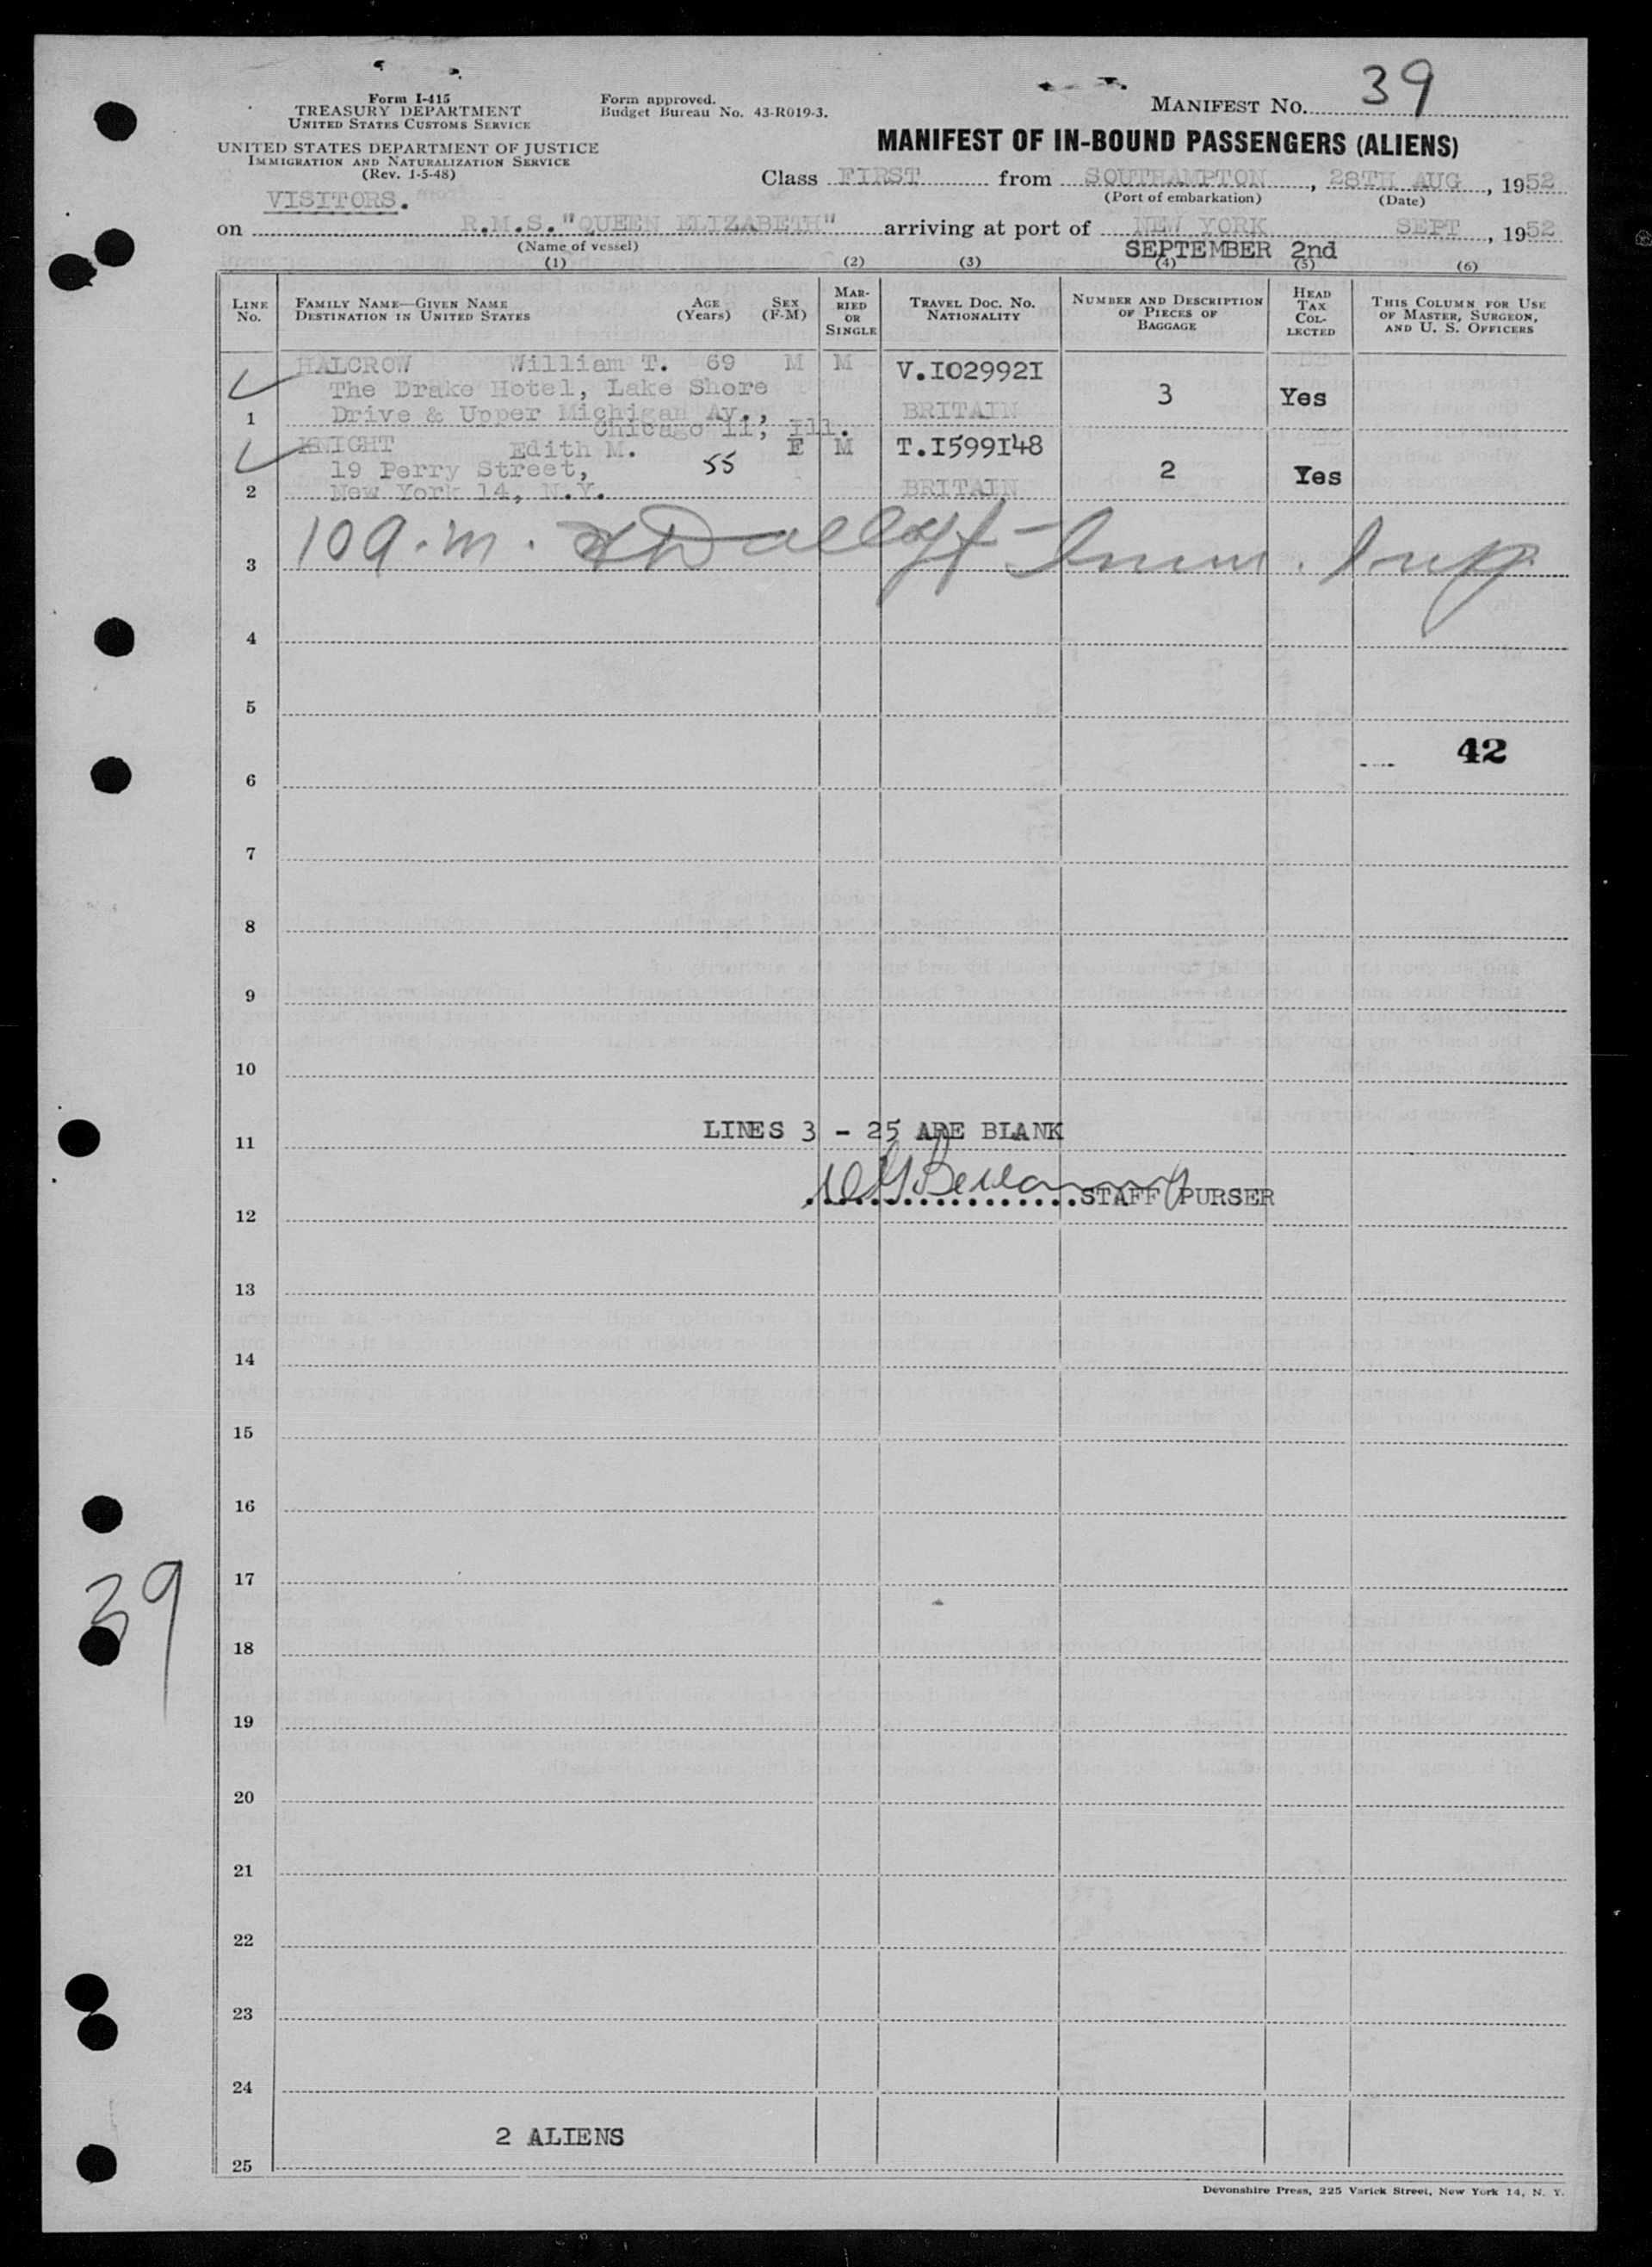 Form I-415
TREASURY DEPARTMENT
UNITED STATES CUSTOMS SERVICE
UNITED STATES DEPARTMENT OF JUSTICE
IMMIGRATION AND NATURALIZATION SERVICE
(Rev. 1-5-48)
Form approved.
Budget Bureau No. 43-R019-3.
MANIFEST No. 39
MANIFEST OF IN-BOUND PASSENGERS (ALIENS)
Class FIRST from SOUTHAMPTON, 28TH AUG, 1952
(Port of embarkation) (Date)
VISITORS.
on R.M.S. "QUEEN ELIZABETH" arriving at port of NEW YORK SEPT, 1952
(Name of vessel) SEPTEMBER 2nd
(1) (2) (3) (4) (5) (6)
LINE No. FAMILY NAME—GIVEN NAME DESTINATION IN UNITED STATES AGE (Years) SEX (F-M) MARRIED OR SINGLE TRAVEL DOC. NO. NATIONALITY NUMBER AND DESCRIPTION OF PIECES OF BAGGAGE HEAD TAX COLLECTED THIS COLUMN FOR USE OF MASTER, SURGEON, AND U. S. OFFICERS
HALCROW William T. 69 M M V.I02992I
The Drake Hotel, Lake Shore 3 Yes
1 Drive & Upper Michigan Av., BRITAIN
Chicago 11, Ill.
KNIGHT Edith M. 55 F M T.I599I48
19 Perry Street, 2 Yes
2 New York 14, N.Y. BRITAIN
3 10 a.m. Imm. Insp
4
5
42
6
7
8
9
10
LINES 3 - 25 ARE BLANK
11
STAFF PURSER
12
13
14
15
16
17
39
18
19
20
21
22
23
24
2 ALIENS
25
Devonshire Press, 225 Varick Street, New York 14, N. Y.